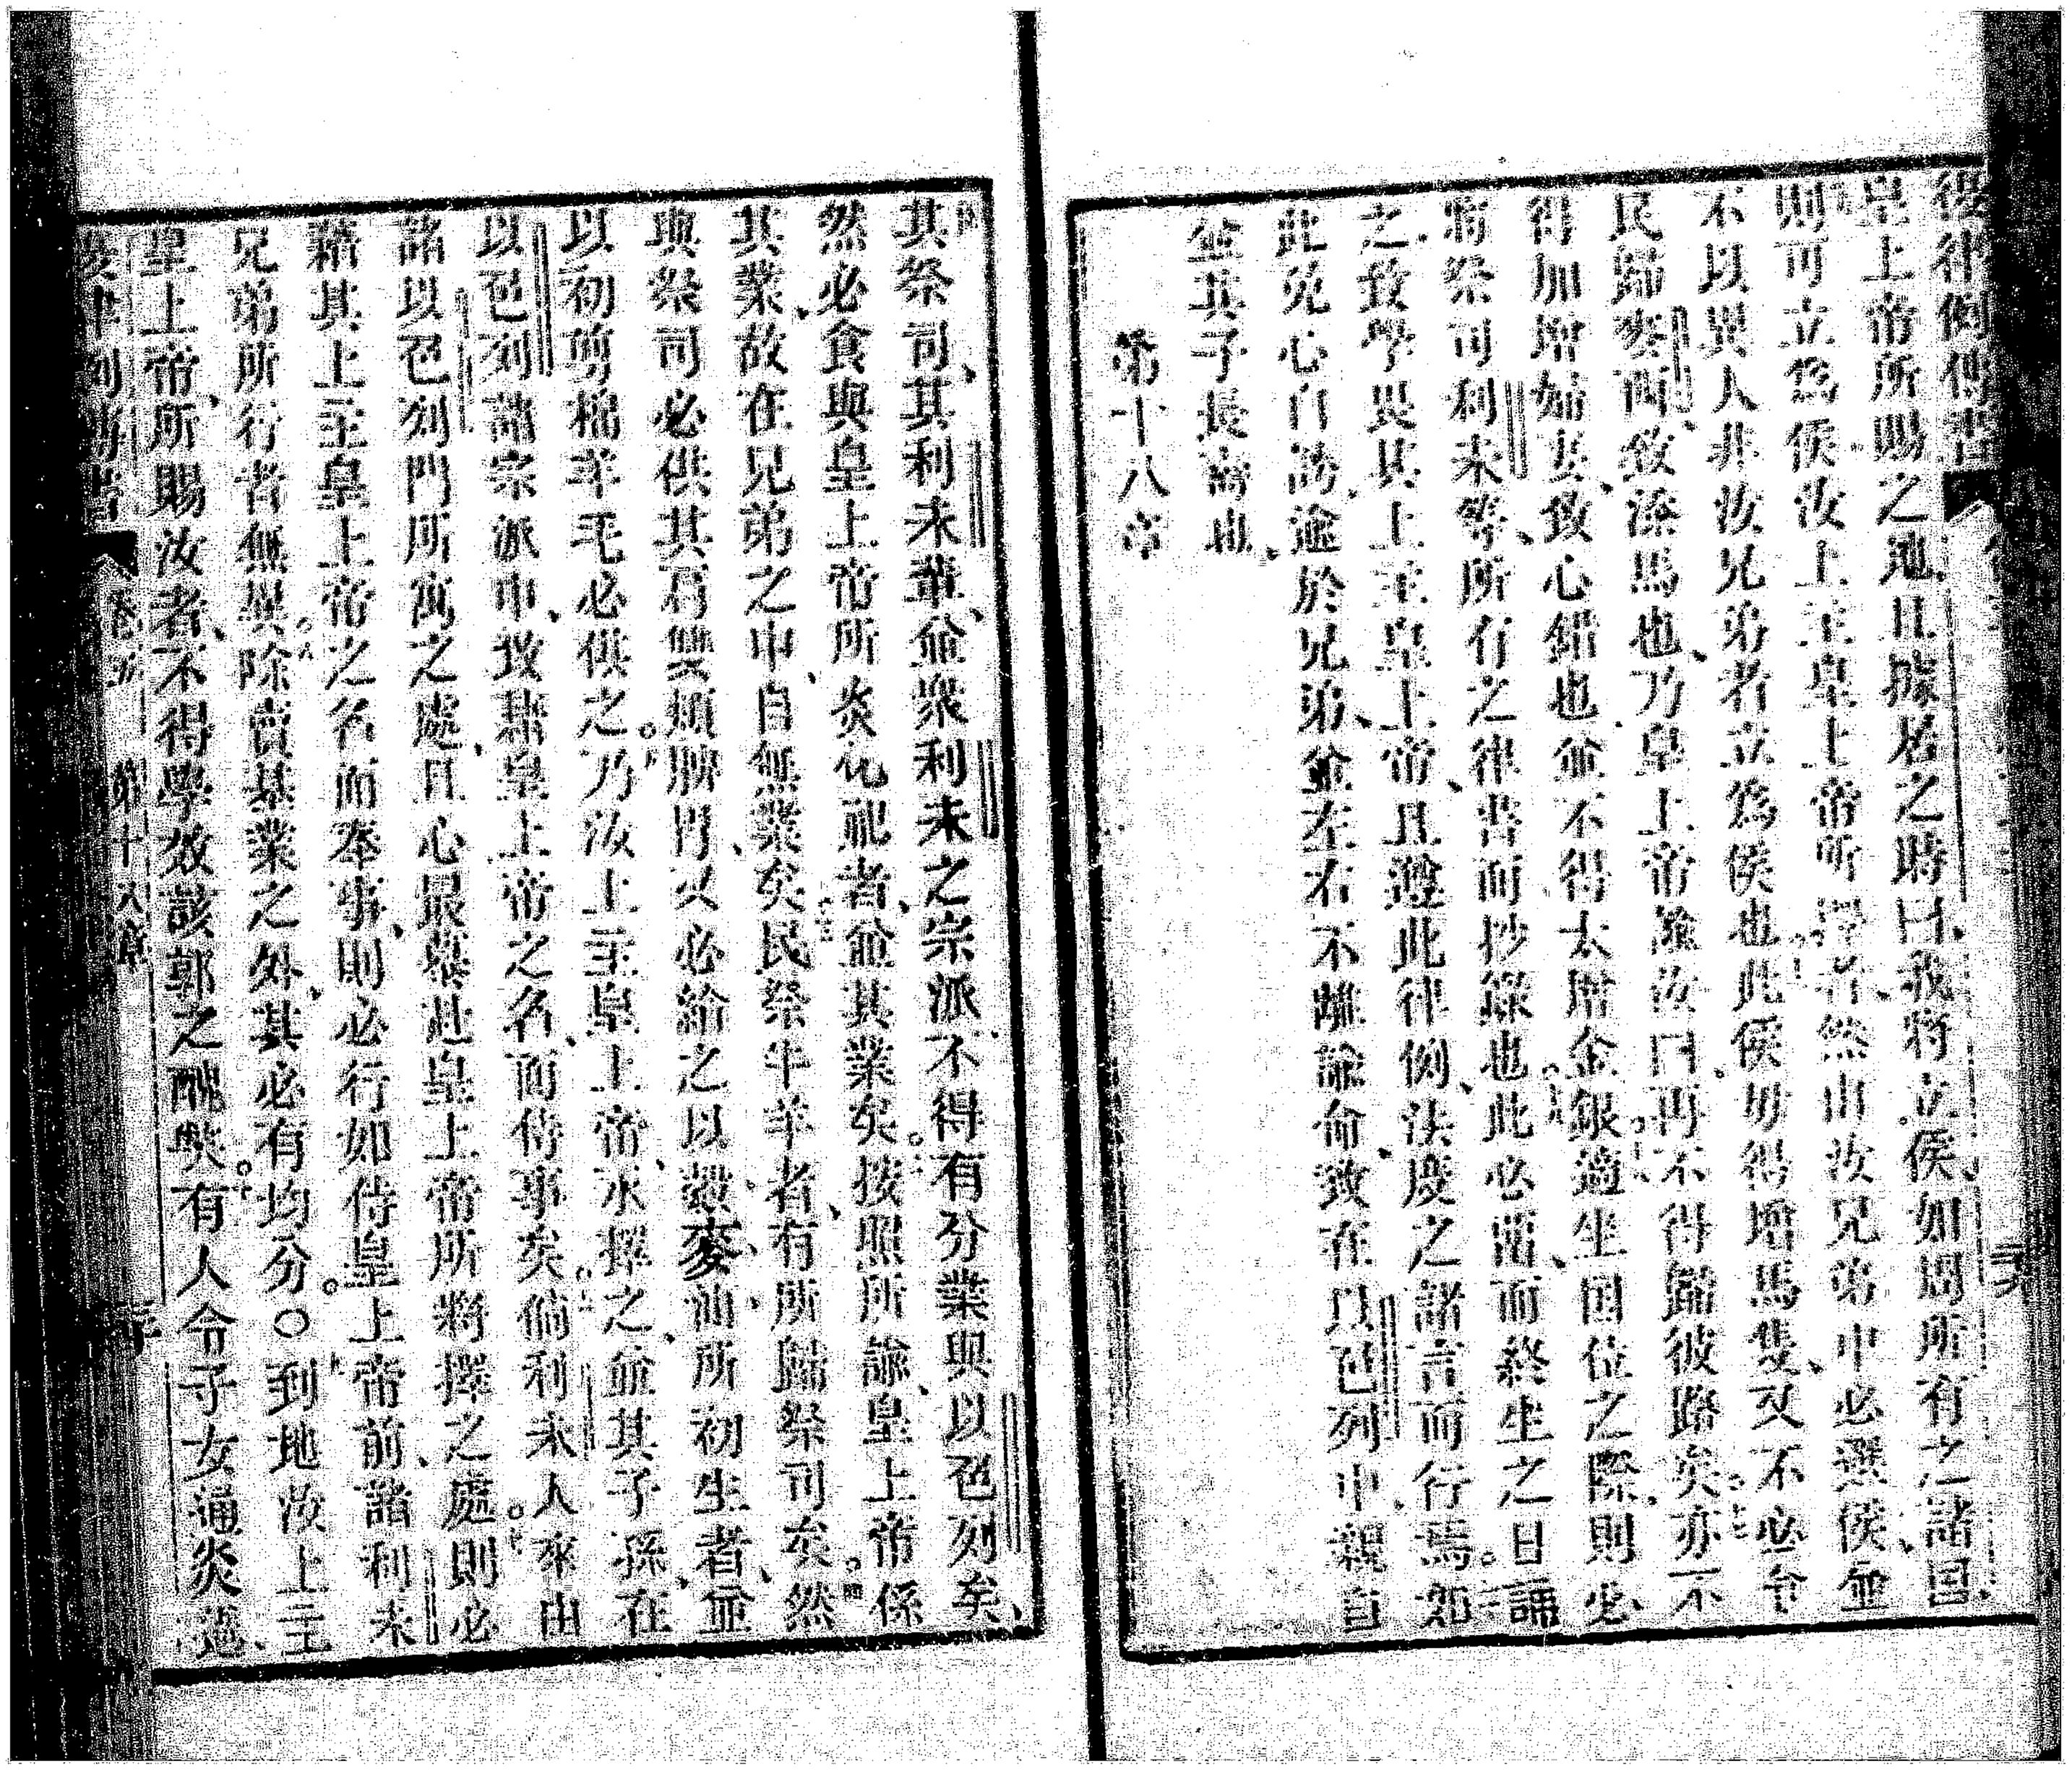 復律例傳書
皇上帝所賜之地且據居之時曰我將立侯如周所有之諸国
則可立為侯汝上主皇上帝所擇者然由汝兄弟中必選侯並
不以異人非汝兄弟者立為侯也此侯毋得增馬隻又不必令
民歸麥西致添馬也乃皇上帝諭汝曰再不得歸彼路矣亦不
得加增婦妻致心錯也並不得太增金銀適坐国位之際則必
將祭司利未等所有之律書而抄錄也此必留而終生之日誦
之致學畏其上主皇上帝且遵此律例法度之諸言而行焉如
此免心自誇逾於兄弟並左右不離諭命致在以色列中親自
並其子長壽也
第十八章
其祭司其利未輩並眾利未之宗派不得有分業與以色列矣
然必食與皇上帝所炎化祀者並其業矣按照所諭皇上帝係
其業故在兄弟之中自無業矣民祭牛羊者有所歸祭司矣然
與祭司必供其肩雙頰脾胃又必給之以穀麥油所初生者並
以初剪棉羊毛必供之乃汝上主皇上帝永擇之並其子孫在
以色列諸宗派中致肆皇上帝之名而侍事矣倘利未人來由
諸以色列門所寓之處且心最慕赴皇上帝所將擇之處則必
藉其上主皇上帝之名而奉事則必行如侍皇上帝前諸利未
兄弟所行者無異除賣基業之外其必有均分○到地汝上主
皇上帝所賜汝者不得學效該郭之醜獘有人令子女通炎
復律例傳書 卷五 第十八章